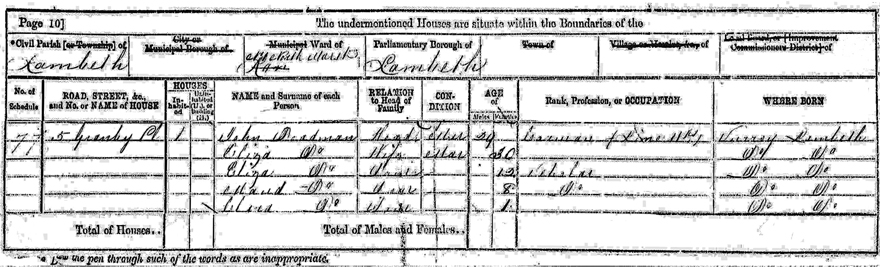 Page 10] The undermentioned Houses are situate within the Boundaries of the
*Civil Parish [or Township] of City or Municipal Borough of Municipal Ward of Parliamentary Borough of Town of Village or Hamlet, &c., of Local Board, or [Improvement Commissioners District] of
Lambeth Lambeth Marsh Lambeth
No. of Schedule ROAD, STREET, &c., and No. or NAME of HOUSE HOUSES Inhabited Uninhabited (U.), or Building (B.) NAME and Surname of each Person RELATION to Head of Family CONDITION AGE of Males Females Rank, Profession, or OCCUPATION WHERE BORN
77 5 Granby Pl 1 John Deadman Head 29 Surrey Lambeth
Eliza Do Wife Mar 30 Do Do
Eliza Do 12 Scholar Do Do
Maud Do 8 Do Do Do
Clara Do 1 Do Do
Total of Houses.. Total of Males and Females..
* Draw the pen through such of the words as are inappropriate.